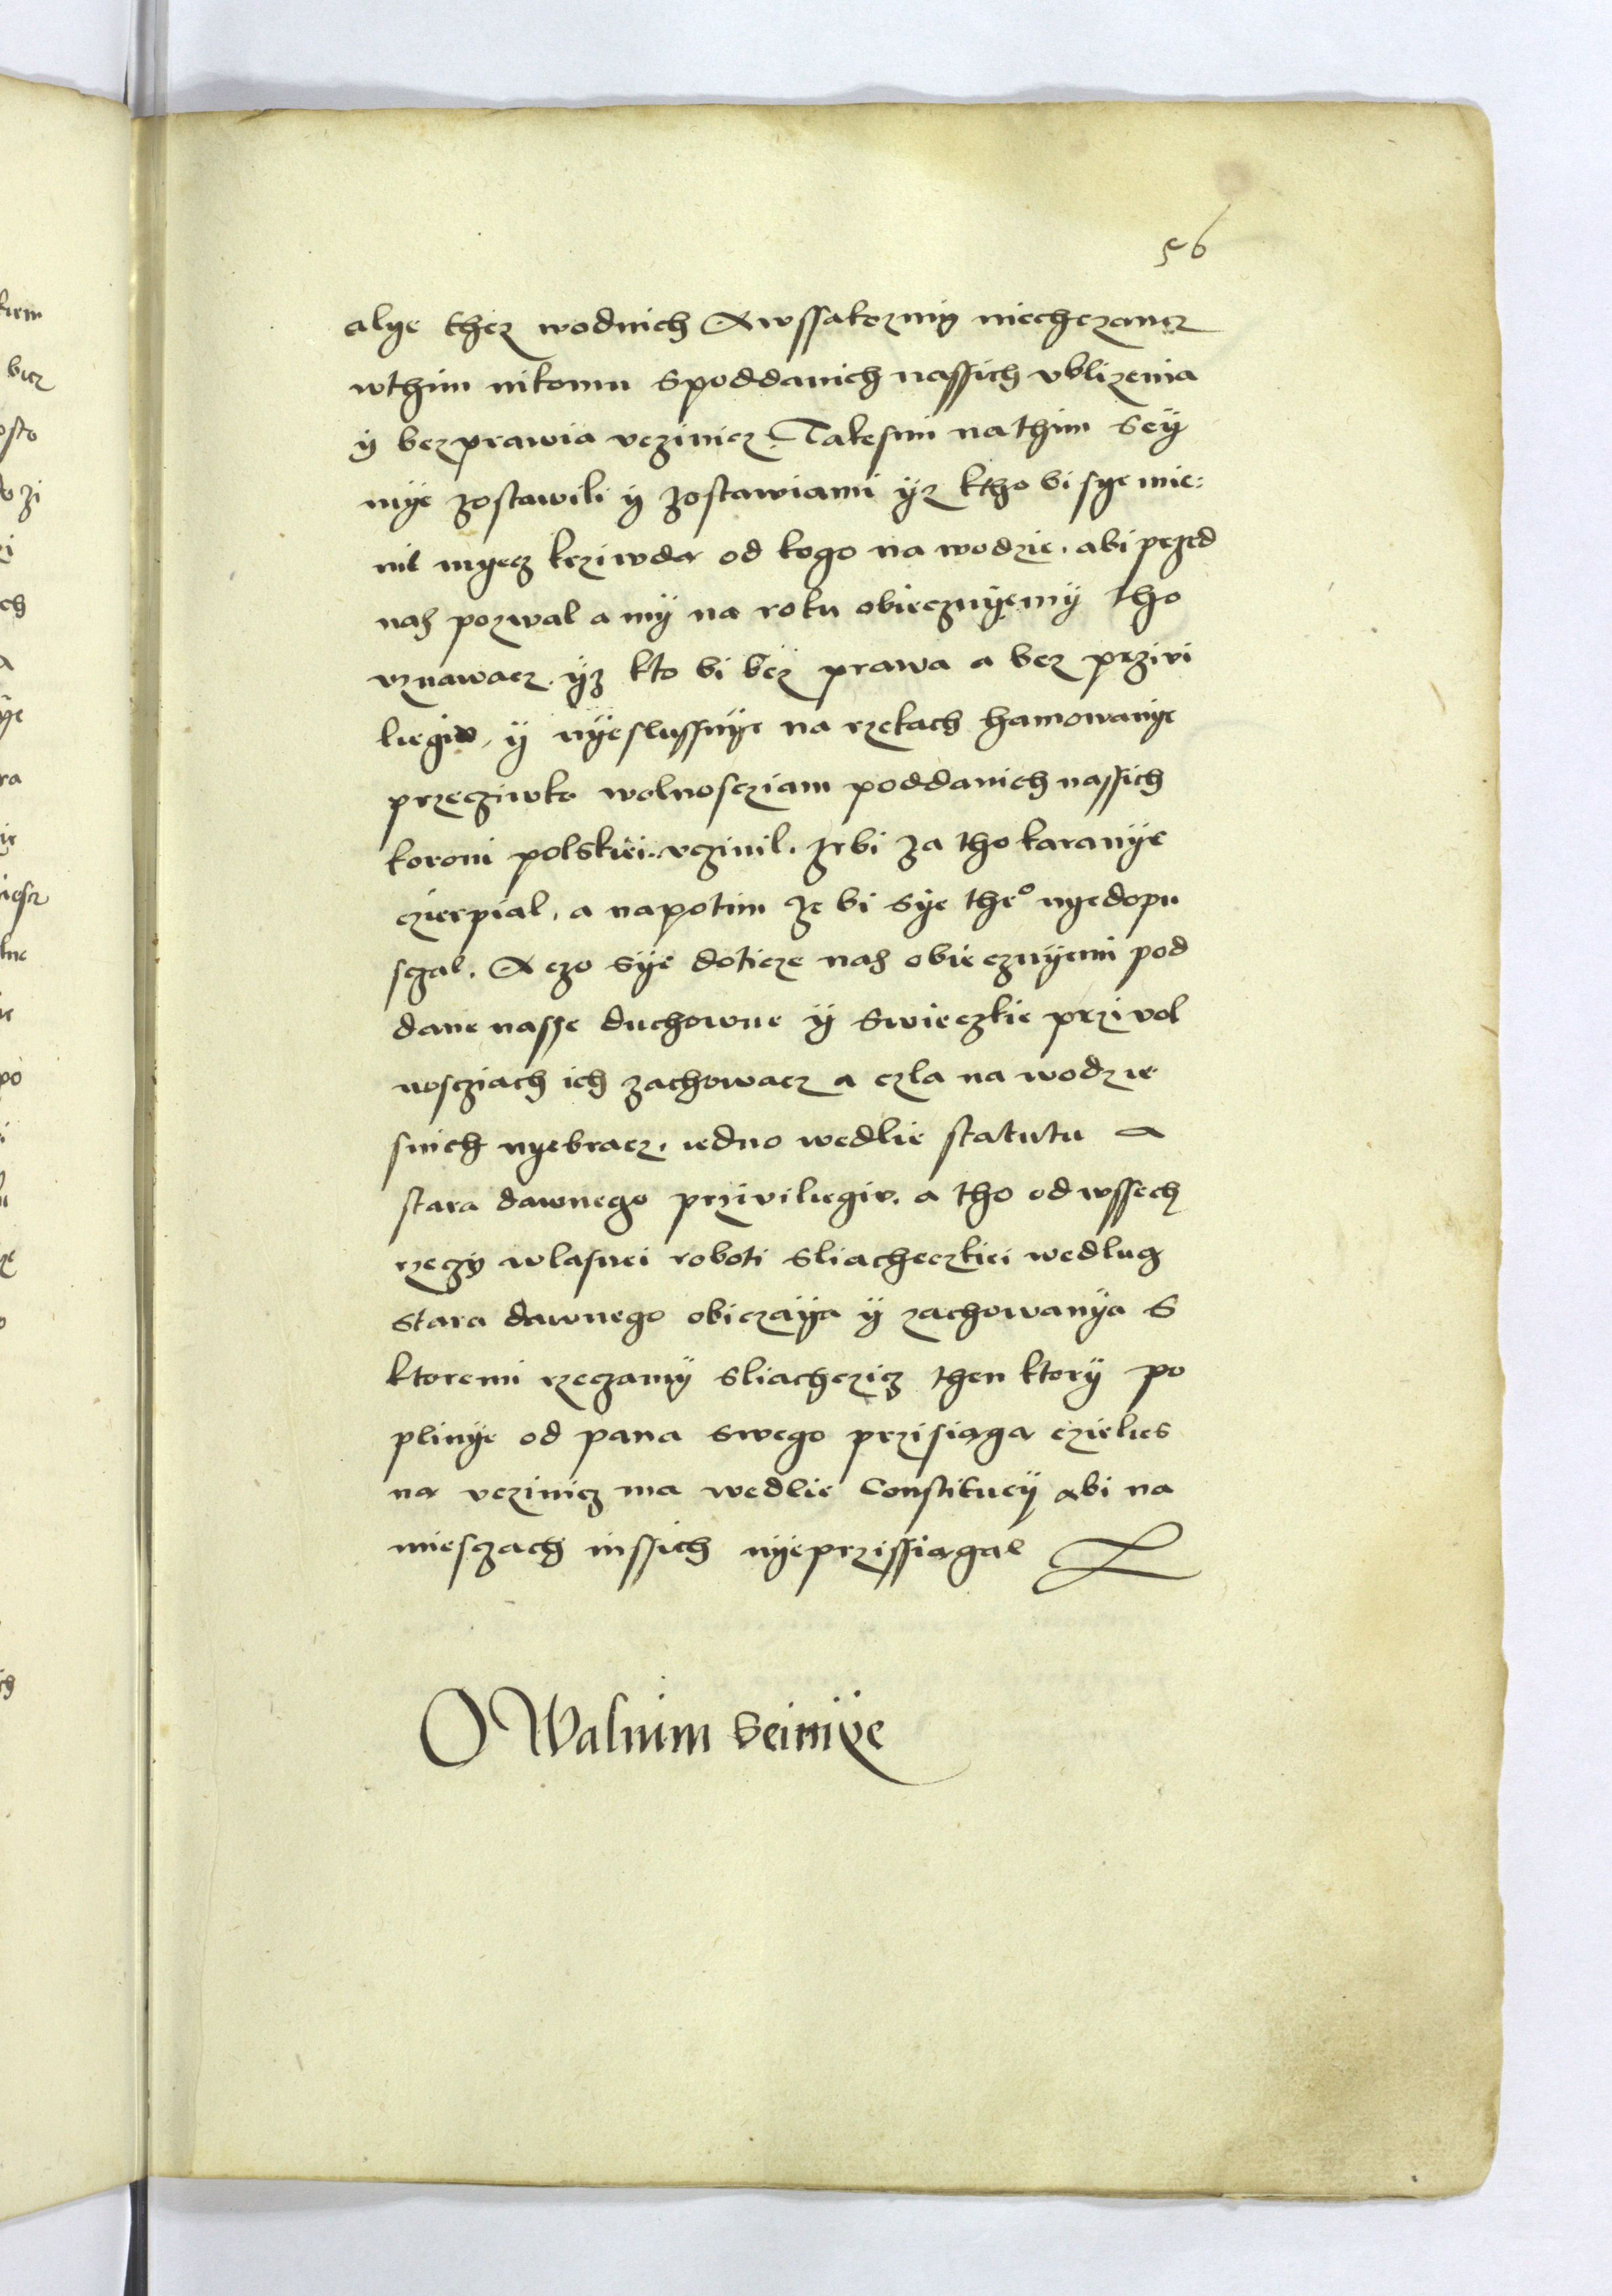 56
alye thez wodnich A wssakozmy niechczancz
wthim nikomu spoddanich nassich vblizenia
y bezprawia vczinicz. Takesmi na thim Sey
mye zostawili y zostawiami yz ktho bi sye mie:
nil myecz krziwdę od kogo na wodzie. abi przed
nas pozwal a my na roku obieczuyemy tho
vznawacz. yz kto bi bez prawa a bez przivi
liegiw, y nyeslussnye na rzekach hamowanye
przecziwko wolnoscziam poddanich nassich
koroni polskiei vczinil. zebi za tho karanye
czierpial, a napotim ze bi sye theo nyedopu
sczal. A czo sye doticze nas obieczuyemi pod
dane nasse duchowne y swieczkie przi vol
nosciach ich zachowacz a czla na wodzie
snich nyebracz, iedno wedlie statutu a
stara dawnego priviliegiv. a tho od wssech
rzeczy wlasnei roboti sliacheczkiei wedlug
stara dawnego obiczaya y zachowanya S
ktoremi rzeczamy sliachczicz then ktory po
plinye od pana swego przisięga czielies
ną vczinicz ma wedlie Constitucy abi na
miesczach inssich nyeprzissięgal
O Walnim Seimye